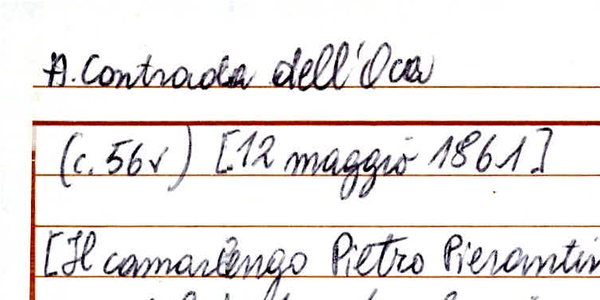 A. Contrada dell'Oca
(c. 56v) [12 maggio 1861]
[Il camarlengo Pietro Pierantin